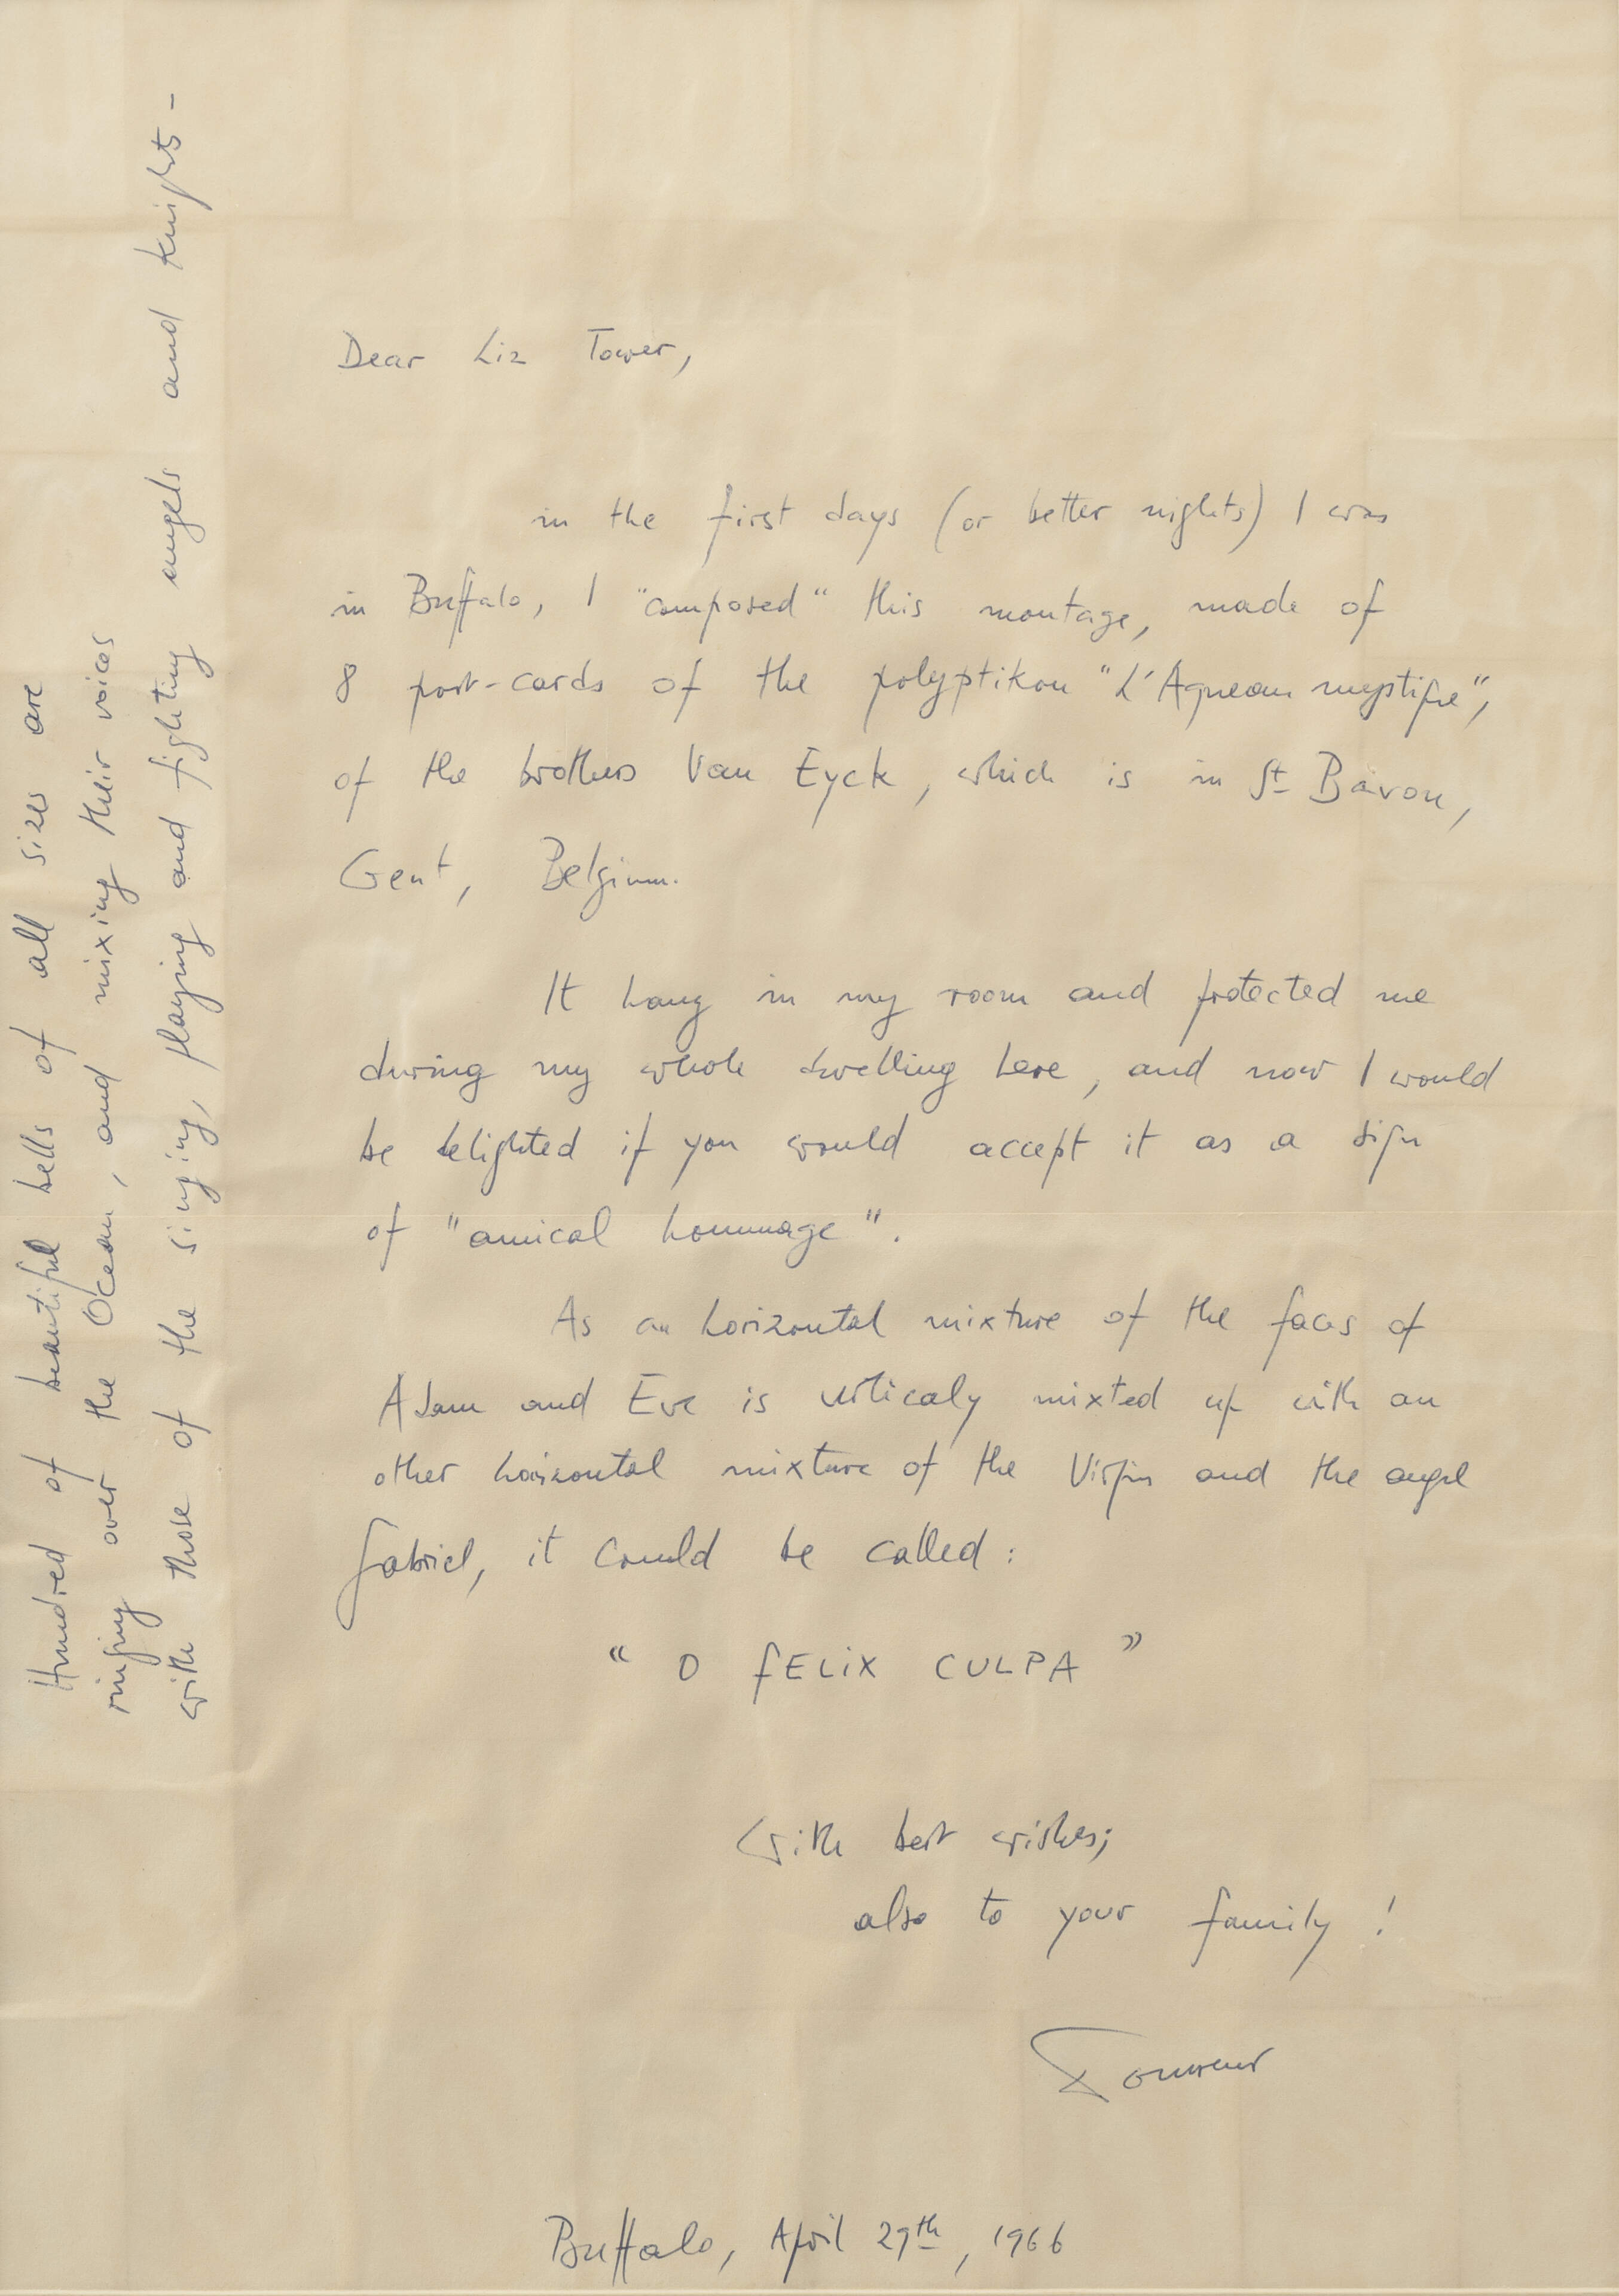 Dear Liz Tower,
in the first days (or better nights) I was
in Buffalo, I "composed" this montage, made of
8 post-cards of the polyptikon "L'Agneau mystique",
of the brothers Van Eyck, which is in St Bavon,
Gent, Belgium.
It hang in my room and protected me
during my whole dwelling here, and now I would
be delighted if you would accept it as a sign
of "amical hommage".
As an horizontal mixture of the faces of
Adam and Eve is verticaly mixted up with an
other horizontal mixture of the Virgin and the angel
Gabriel, it could be called:
"O FELIX CULPA"
With best wishes;
also to your family!
Buffalo, April 29th, 1966
Hundred of beautiful bells of all sizes are
ringing over the Ocean, and mixing their voices
with those of the singing, playing and fighting angels and knights -